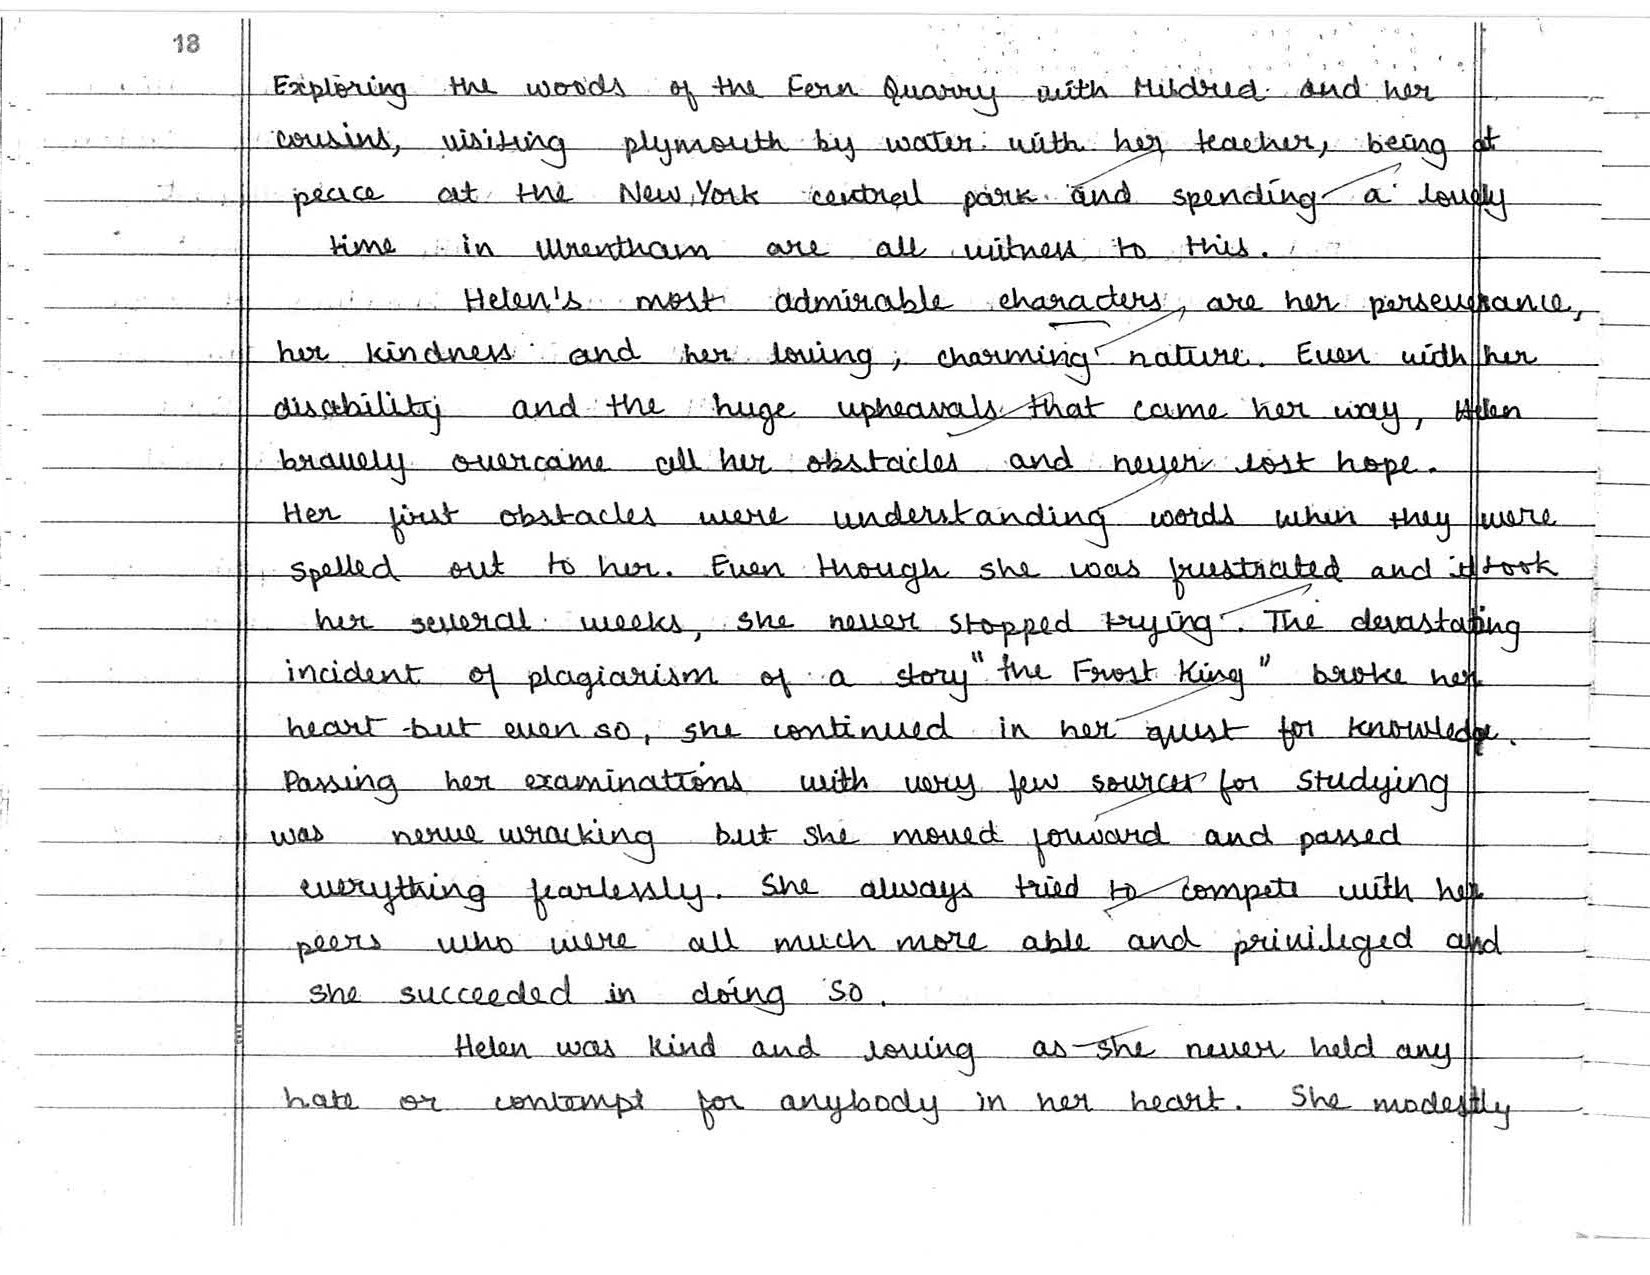 18
Exploring the woods of the Fern Quarry with Mildred and her
cousins, visiting plymouth by water with her teacher, being at
peace at the New York central park and spending a lovely
time in Wrentham are all witness to this.
Helen's most admirable characters, are her perseverance,
her kindness and her loving, charming nature. Even with her
disability and the huge upheavals that came her way, Helen
bravely overcame all her obstacles and never lost hope.
Her first obstacles were understanding words when they were
spelled out to her. Even though she was frustrated and it took
her several weeks, she never stopped trying. The devastating
incident of plagiarism of a story "the Frost King" broke her
heart but even so, she continued in her quest for knowledge.
Passing her examinations with very few sources for studying
was nerve wracking but she moved forward and passed
everything fearlessly. She always tried to compete with her
peers who were all much more able and privileged and
she succeeded in doing so.
Helen was kind and loving as she never held any
hate or contempt for anybody in her heart. She modestly